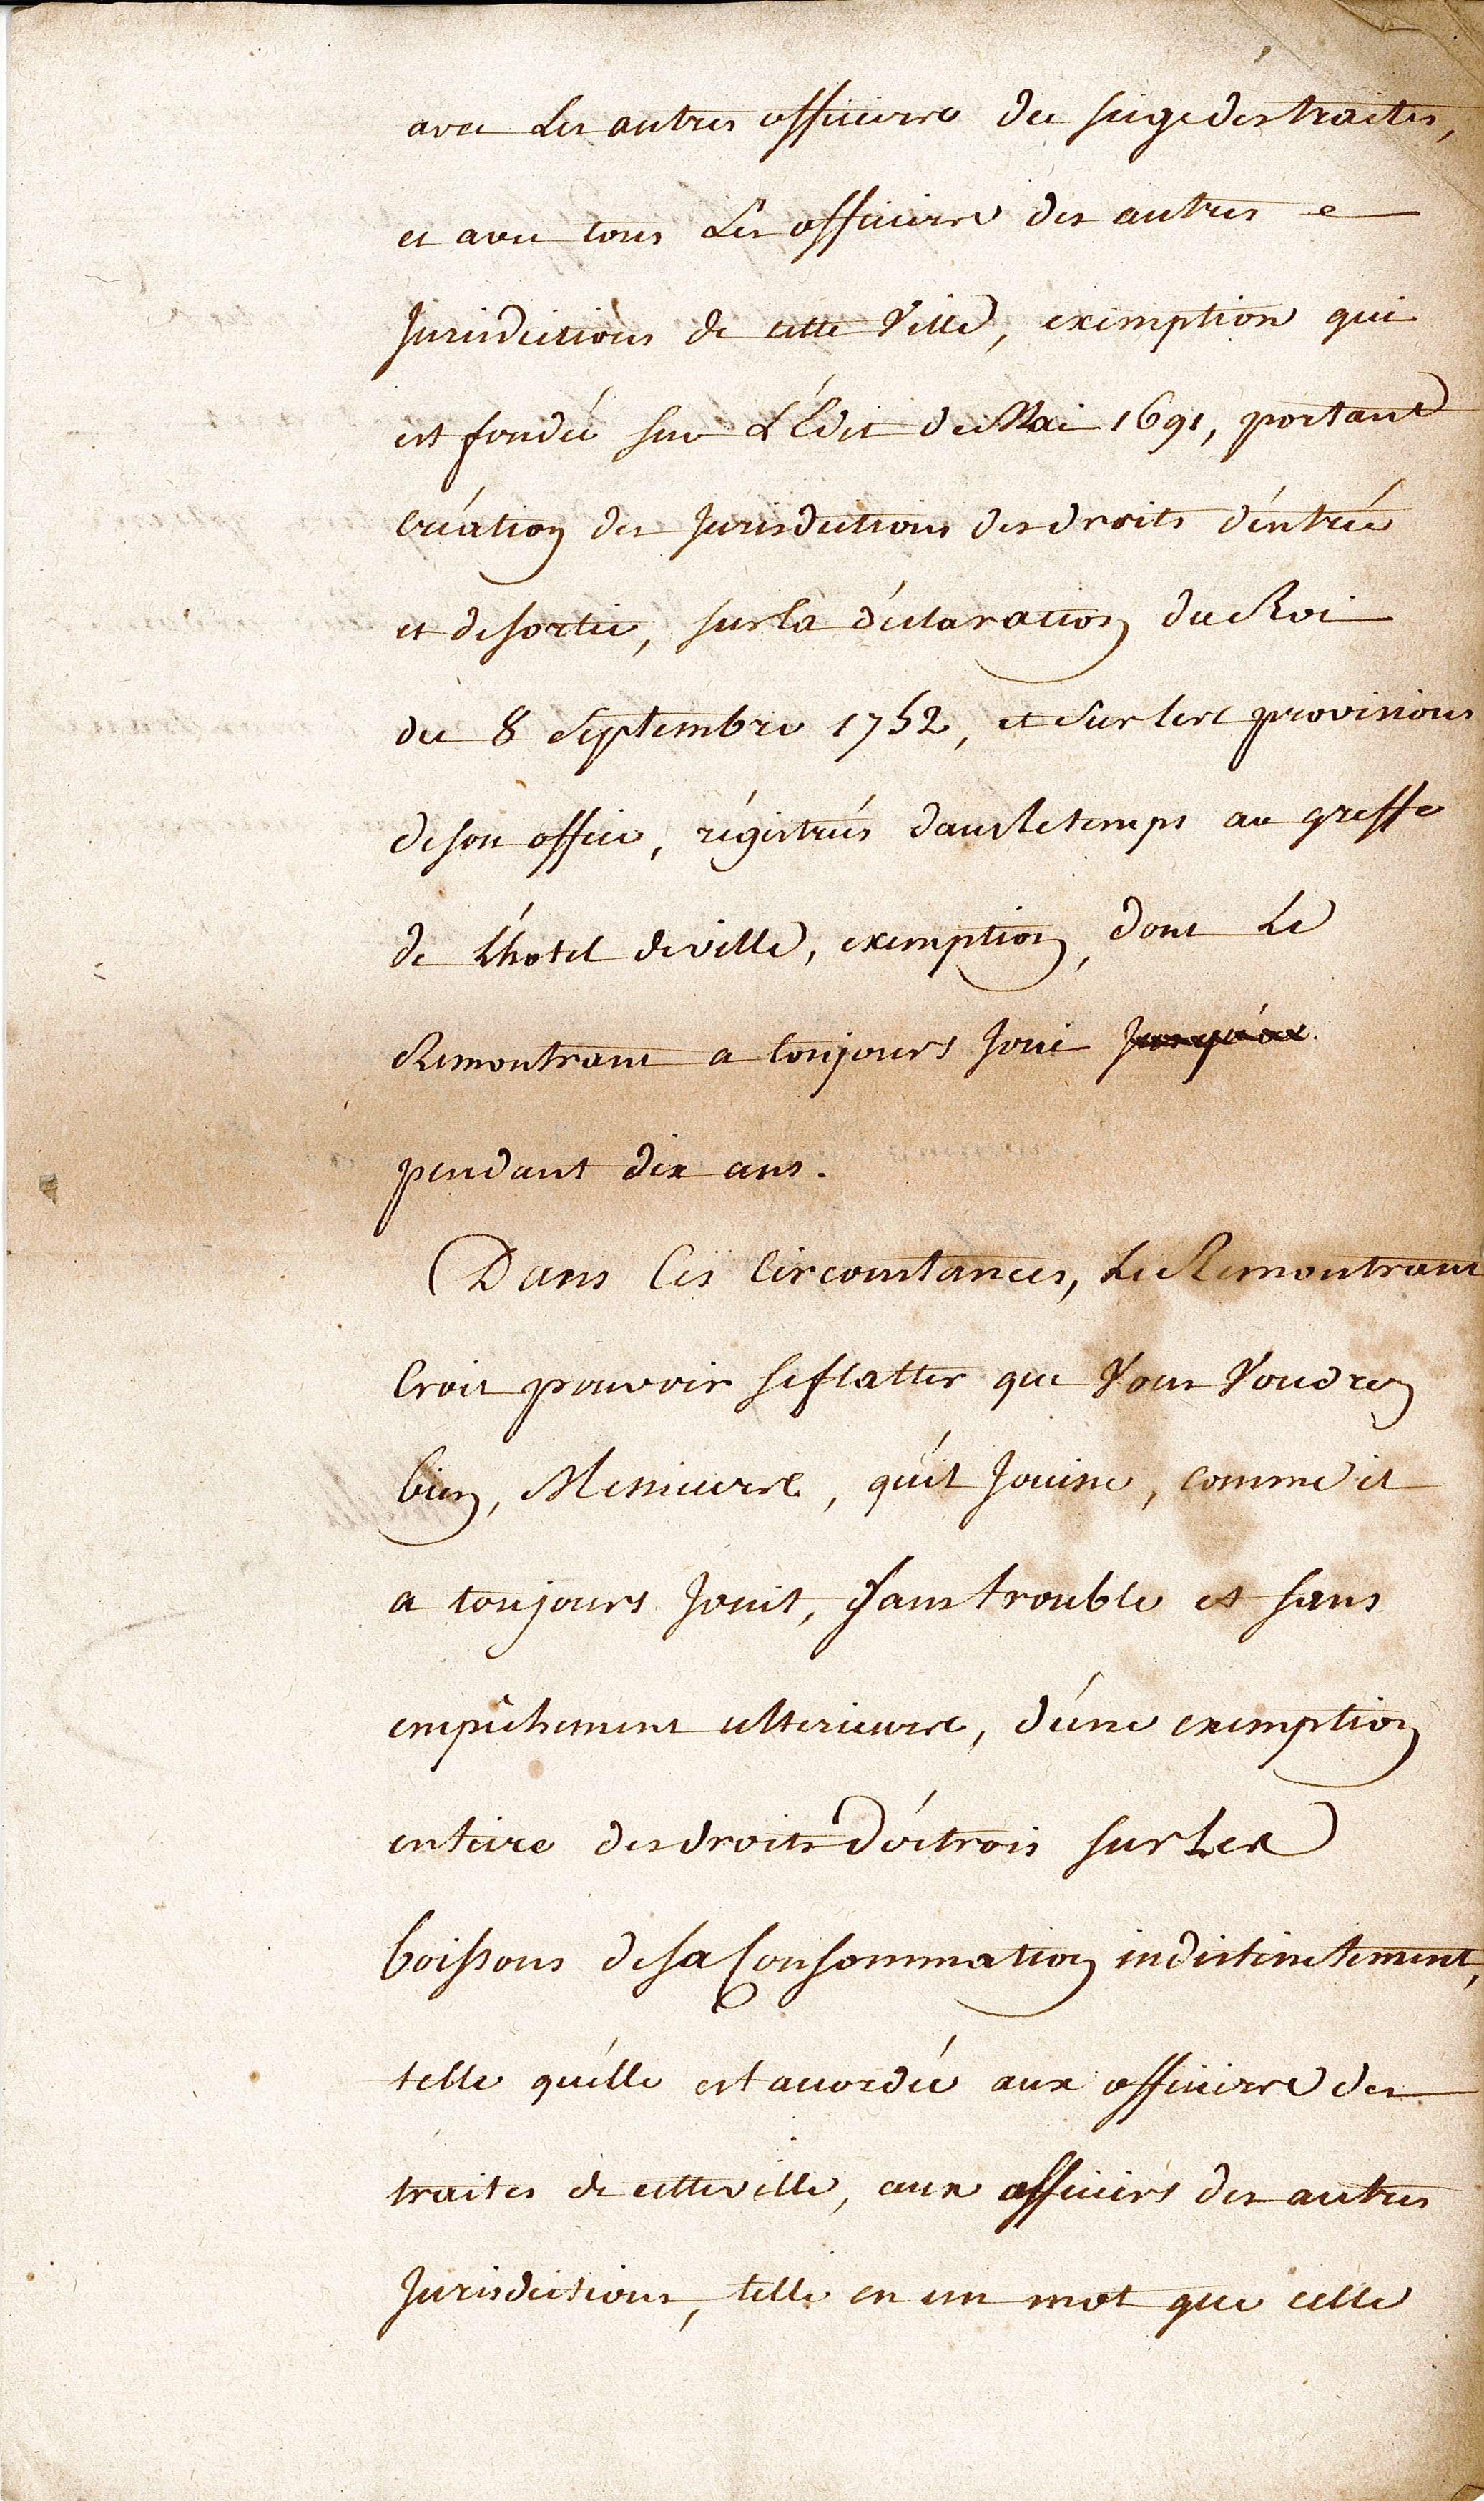 avec Les autres officiers du siege des traites,
et avec tous Les officiers des autres
Jurisdictions de cette Ville, exemption qui
est fondée sur L'Edit de Mai 1691, portant
création des Jurisdictions des droits d'éntrée
et de sortie, sur la déclaration du Roi
du 8 Septembre 1752, et sur les provisions
de son office, régistrés dans le temps au greffe
de L'hotel de ville, exemption, dont Le
Remontrant a toujours Joui Jusqu'au
pendant dix ans.
Dans Ces Circonstances, Le Remontrant
Croit pouvoir se flatter que Vous Voudrez
bien, Messieurs, qu'il Jouisse, comme il
a toujours Jouit, sans trouble et sans
empêchement ulterieurs, d'une exemption
entiere des droits d'octrois sur Les
boissons de sa Consommation indistinctement,
telle qu'elle est accordée aux officiers des
traites de cette ville, aux officiers des autres
Jurisdictions, telle en un mot que celle